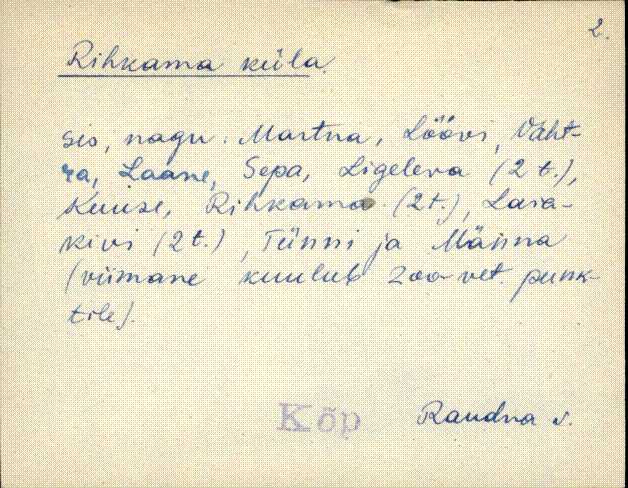 2.
Rihkama küla.
ses, nagu. Martna, Löövi, Vaht-
ra, Laane, Sepa, Ligeleva (2 t.),
Kuuse, Rihkama (2 t.), Lava-
kivi (2 t.), Tünni ja Männa
(viimane kuulub Zoo-vet. punk-
tile).
Kõp Raudna v.